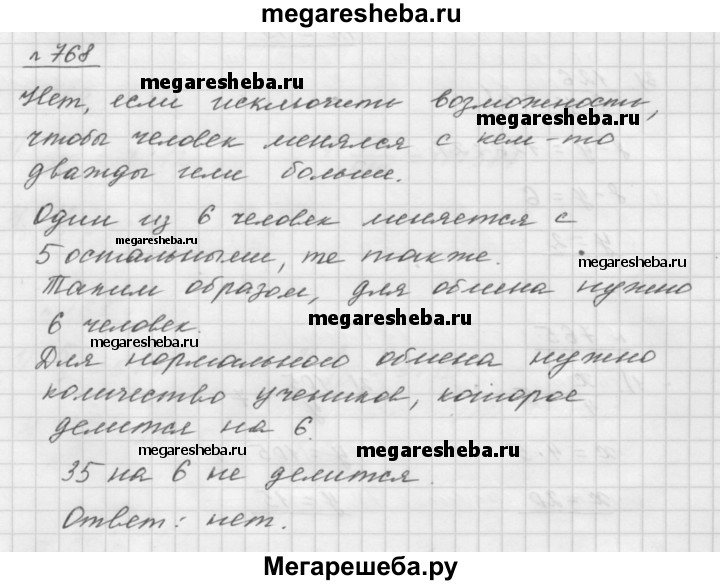 megaresheba.ru
n 768
megaresheba.ru
Нет, если исключить возможность,
megaresheba.ru
чтобы человек менялся с кем-то
дважды или больше.
Один из 6 человек меняется с
megaresheba.ru
5 остальными, те также.
megaresheba.ru
Таким образом, для обмена нужно
megaresheba.ru
6 человек.
megaresheba.ru
Для нормального обмена нужно
количество учеников, которое
megaresheba.ru
делится на 6.
megaresheba.ru
megaresheba.ru
35 на 6 не делится.
Ответ: нет.
Мегарешеба.ру